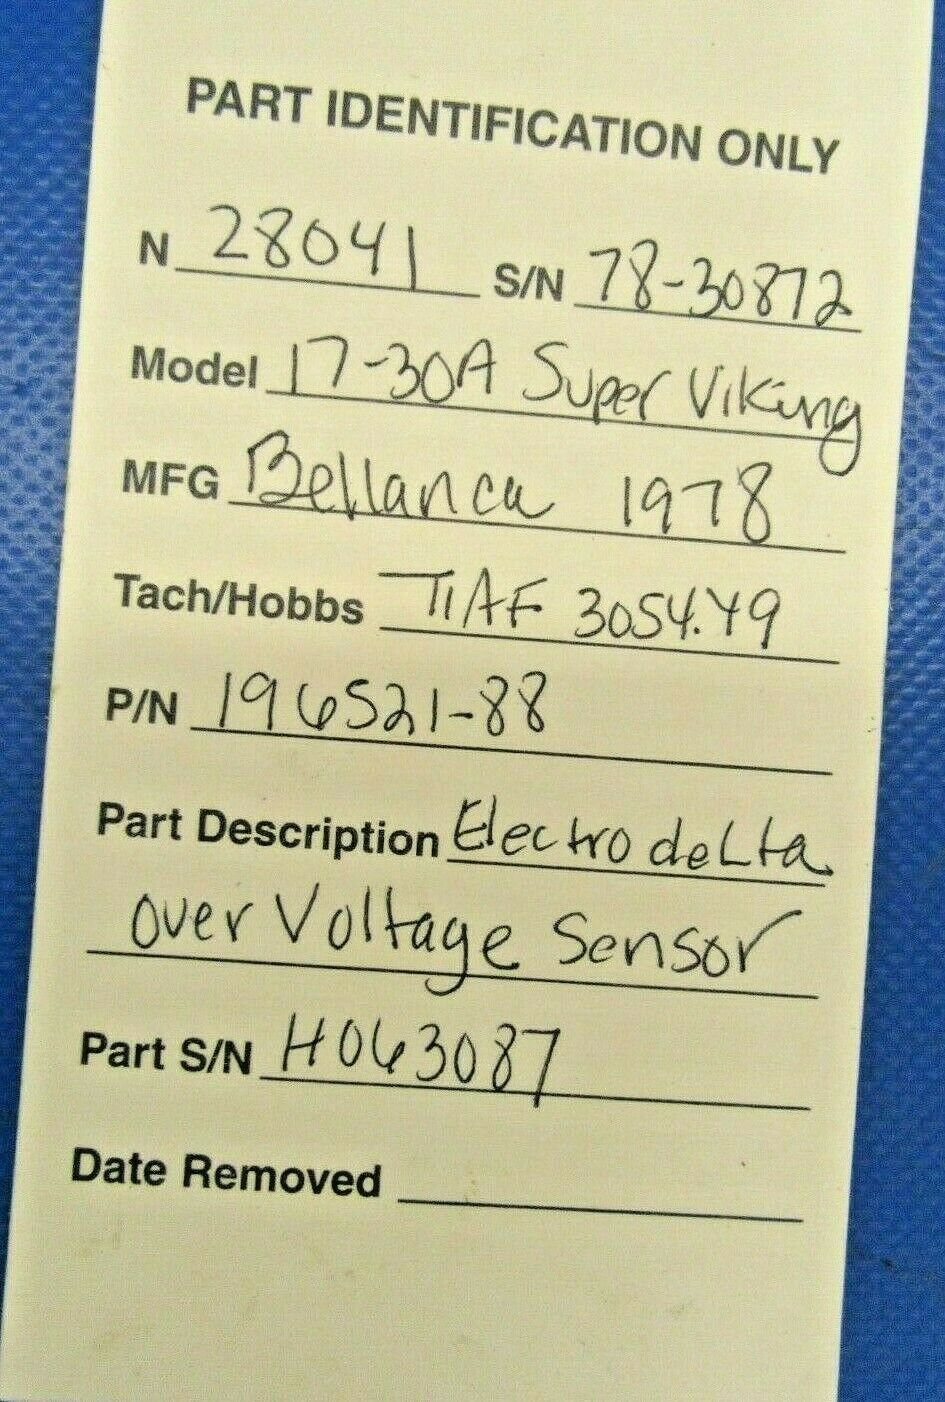 PART IDENTIFICATION ONLY
N 28041 S/N 78-30872
Model 17-30A Super Viking
MFG Bellanca 1978
Tach/Hobbs TIAF 3054.49
P/N 196521-88
Part Description Electro deLta
over Voltage Sensor
Part S/N H063087
Date Removed